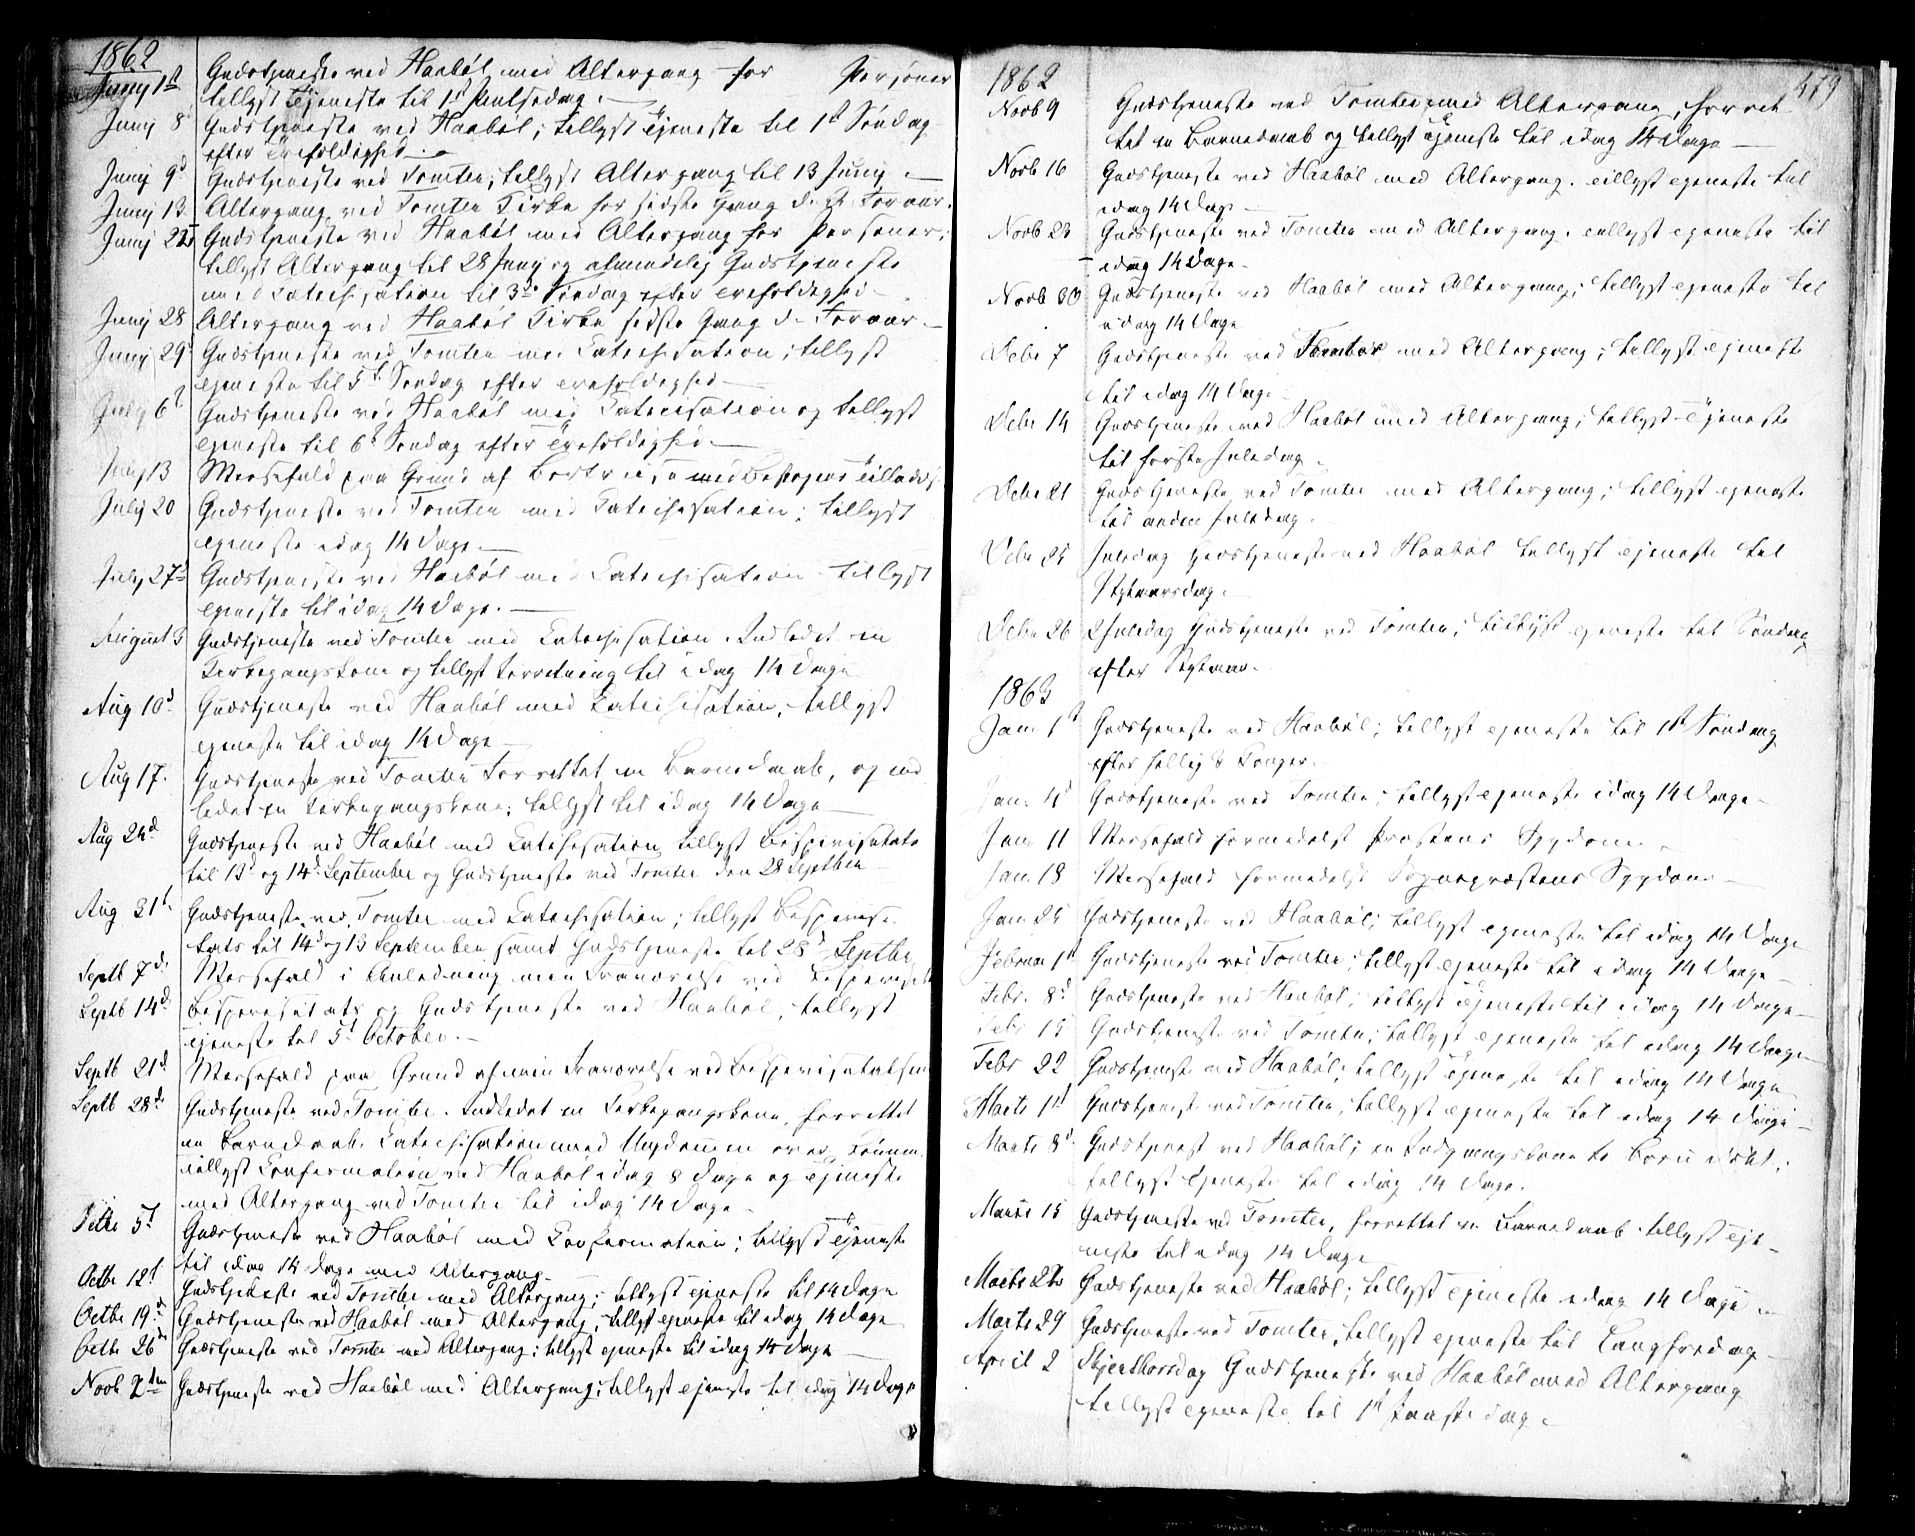 1862
Juny 1st Gudstjeneste ved Haabøl med Altergang for Personer
tillyst Tjeneste til 1st Pintsedag.
Juny 8 Gudstjeneste ved Haabøl; tillyst Tjeneste til 1st Søndag
efter Trefoldighed.
Juny 9d Gudstjeneste ved Tomter; tillyst Altergang til 13 Juny
Juny 13 Altergang ved Tomter Kirke for sidste Gang d. Foraar.
Juny 22 Gudstjeneste ved Haabøl med Altergang for Personer;
tillyst Altergang til 28 Juny og almindelig Gudstjeneste
med Catechisation til 3die Søndag efter Trefoldighed
Juny 28 Altergang ved Haabøl Kirke sidste Gang d. Foraar.
Juny 29 Gudstjeneste ved Tomter med Catechisation; tillyst
Tjeneste til 5t Søndag efter Trefoldighed
July 6t Gudstjeneste ved Haabøl med Catecisation og tillyst
Tjeneste til 6t Søndag efter Trefoldighed.
July 13 Messefald paa Grund af Bortreise med Bispens Tilladels
July 20 Gudstjeneste ved Tomter med Catechisation; tillyst
Tjeneste idag 14 Dage.
July 27d Gudstjeneste ved Haabøl med Catechisation tillyst
Tjeneste til idag 14 Dage.
August 3 Gudstjeneste ved Tomter med Catechisation. Indledet en
Kirkegangskone og tillyst Forretning til idag 14 Dage
Aug 10d Gudstjeneste ved Haabøl med Catechisation; tillyst
Tjeneste til idag 14 Dage
Aug 17. Gudstjeneste ved Tomter forrettet en Barnedaab, og ind
ledet en Kirkegangskone; tillyst til idag 14 Dage
Aug 24d Gudstjeneste ved Haabøl med Catechisation tillyst Bispevisitats
til 13d og 14d September og Gudstjeneste ved Tomter den 28 Septbr
Aug 31t Gudstjeneste ved Tomter med Catechisation; tillyst Bispevisi
tats til 14d og 13 September samt Gudstjeneste til 28d Septbr
Septb 7d. Messefald i Anledning min Fraværelse ved Bispevisit
Septb 14d Bispevisitats og Gudstjeneste ved Haabøl, tillyst
Tjeneste til 5t October.
Septb 21d Messefald paa Grund af min Fraværelse ved Bispevisitatsen
Septb 28d Gudstjeneste ved Tomter. Indledet en Kirkegangskone, forrettet
en Barnedaab. Catechisation med Ungdommen
tillyst Confirmation ved Haabøl idag 8 Dage og Tjeneste
med Altergang ved Tomter til idag 14 Dage
Octbr 5t Gudstjeneste ved Haabøl med Confirmation; tillyst Tjeneste
til idag 14 Dage med Altergang.
Octbr 12t Gudstjeneste ved Tomter med Altergang; tillyst Tjeneste til 14 Dage
Octbr 19d Gudstjeneste ved Haabøl med Altergang; tillyst Tjeneste til idag 14 Dage
Octbr 26d Gudstjeneste ved Tomter med Altergang; tillyst Tjeneste til idag 14 Dage
Novb 2den Gudstjeneste ved Haabøl med Altergang; tillyst Tjeneste til idag 14 Dage
479
1862
Novb 9 Gudstjeneste ved Tomter med Altergang, forret
tet en Barnedaab og tillyst Tjeneste til idag 14 Dage
Novb 16 Gudstjeneste ved Haabøl med Altergang. tillyst Tjeneste til
idag 14 Dage
Novb 23 Gudstjeneste ved Tomter med Altergang. tillyst Tjeneste til
idag 14 Dage.
Novb 30 Gudstjeneste ved Haabøl med Altergang; tillyst Tjeneste til
idag 14 Dage
Decbr 7 Gudstjeneste ved Tomter med Altergang; tillyst Tjeneste
til idag 14 Dage
Decbr 14 Gudstjeneste ved Haabøl med Altergang; tillyst Tjeneste
til første Juledag.
Decbr 21 Gudstjeneste ved Tomter med Altergang; tillyst Tjeneste
til anden Juledag.
Decbr 25 Juledag Gudstjeneste ved Haabøl tillyst Tjeneste til
Nytaarsdag.
Decbr 26 2 Juledag Gudstjeneste ved Tomter; tillyst Tjeneste til Søndag
efter Nytaar.
1863
Jan 1st Gudstjeneste ved Haabøl; tillyst Tjeneste til 1st Søndag
efter hellig 3 Konger.
Jan. 4d Gudstjeneste ved Tomter; tillyst Tjeneste idag 14 Dage
Jan 11 Messefald formedelst Præstens Sygdom.
Jan. 18 Messefald formedelst Sognepræstens Sygdom
Jan 25 Gudstjeneste ved Haabøl; tillyst Tjeneste til idag 14 Dage
Februar 1st Gudstjeneste ved Tomter; tillyst Tjeneste til idag 14 Dage
Febr. 8d Gudstjeneste ved Haabøl; tillyst Tjeneste til idag 14 Dage
Febr 15 Gudstjeneste ved Tomter; tillyst Tjeneste til idag 14 Dage
Febr 22 Gudstjeneste ved Haabøl; tillyst Tjeneste til idag 14 Dage
Marts 1st Gudstjeneste ved Tomter; tillyst Tjeneste til idag 14 Dage
Marts 8d Gudstjeneste ved Haabøl; en Indgangskone
tillyst Tjeneste til idag 14 Dage.
Marts 15 Gudstjeneste ved Tomter, forrettet en Barnedaab. tillyst Tje
neste til idag 14 Dage
Marts 22 Gudstjeneste ved Haabøl; tillyst Tjeneste idag 14 Dage
Marts 29 Gudstjeneste ved Tomter; tillyst Tjeneste til Langfredag
April 2 Skjerthorsdag Gudstjeneste ved Haabøl med Altergang
tillyst Tjeneste til 1st Paaskedag.